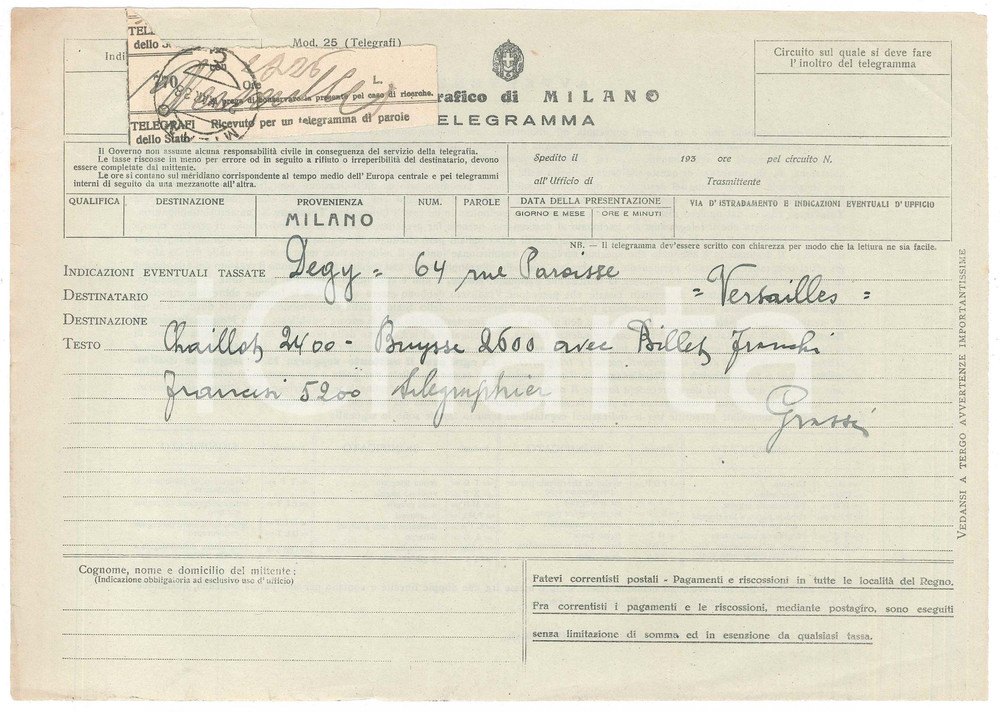 TEL
dello S
Mod. 25 (Telegrafi)
Indi
con
L.
Ore
270
Si prega di conservarlo e presentarlo pel caso di ricerche.
TELEGRAFI Ricevuto per un telegramma di parole
dello Stato
rafico di MILANO
ELEGRAMMA
Circuito sul quale si deve fare
l'inoltro del telegramma
Il Governo non assume alcuna responsabilità civile in conseguenza del servizio della telegrafia.
Le tasse riscosse in meno per errore od in seguito a rifiuto o irreperibilità del destinatario, devono
essere completate dal mittente.
Le ore si contano sul méridiano corrispondente al tempo medio dell' Europa centrale e pei telegrammi
interni di seguito da una mezzanotte all'altra.
Spedito il 193 ore pel circuito N.
all'Ufficio di Trasmittente
QUALIFICA DESTINAZIONE PROVENIENZA NUM. PAROLE DATA DELLA PRESENTAZIONE VIA D'ISTRADAMENTO E INDICAZIONI EVENTUALI D'UFFICIO
MILANO GIORNO E MESE ORE E MINUTI
NB. — Il telegramma dev'essere scritto con chiarezza per modo che la lettura ne sia facile.
INDICAZIONI EVENTUALI TASSATE Degy = 64 rue Paroisse
DESTINATARIO = Versailles =
DESTINAZIONE
TESTO Chaillot 2400 - Buysse 2600 avec Billet Franchi
francesi 5200 telegraphier
Grassi
VEDANSI A TERGO AVVERTENZE IMPORTANTISSIME
iCharta
Cognome, nome e domicilio del mittente:
(Indicazione obbligatoria ad esclusivo uso d'ufficio)
Fatevi correntisti postali - Pagamenti e riscossioni in tutte le località del Regno.
Fra correntisti i pagamenti e le riscossioni, mediante postagiro, sono eseguiti
senza limitazione di somma ed in esenzione da qualsiasi tassa.